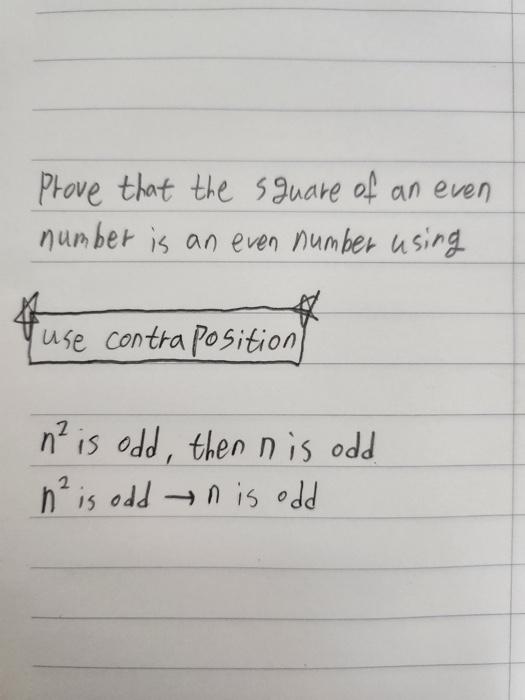 Prove that the square of an even
number is an even number using
use contraposition
n² is odd, then n is odd
n² is odd → n is odd